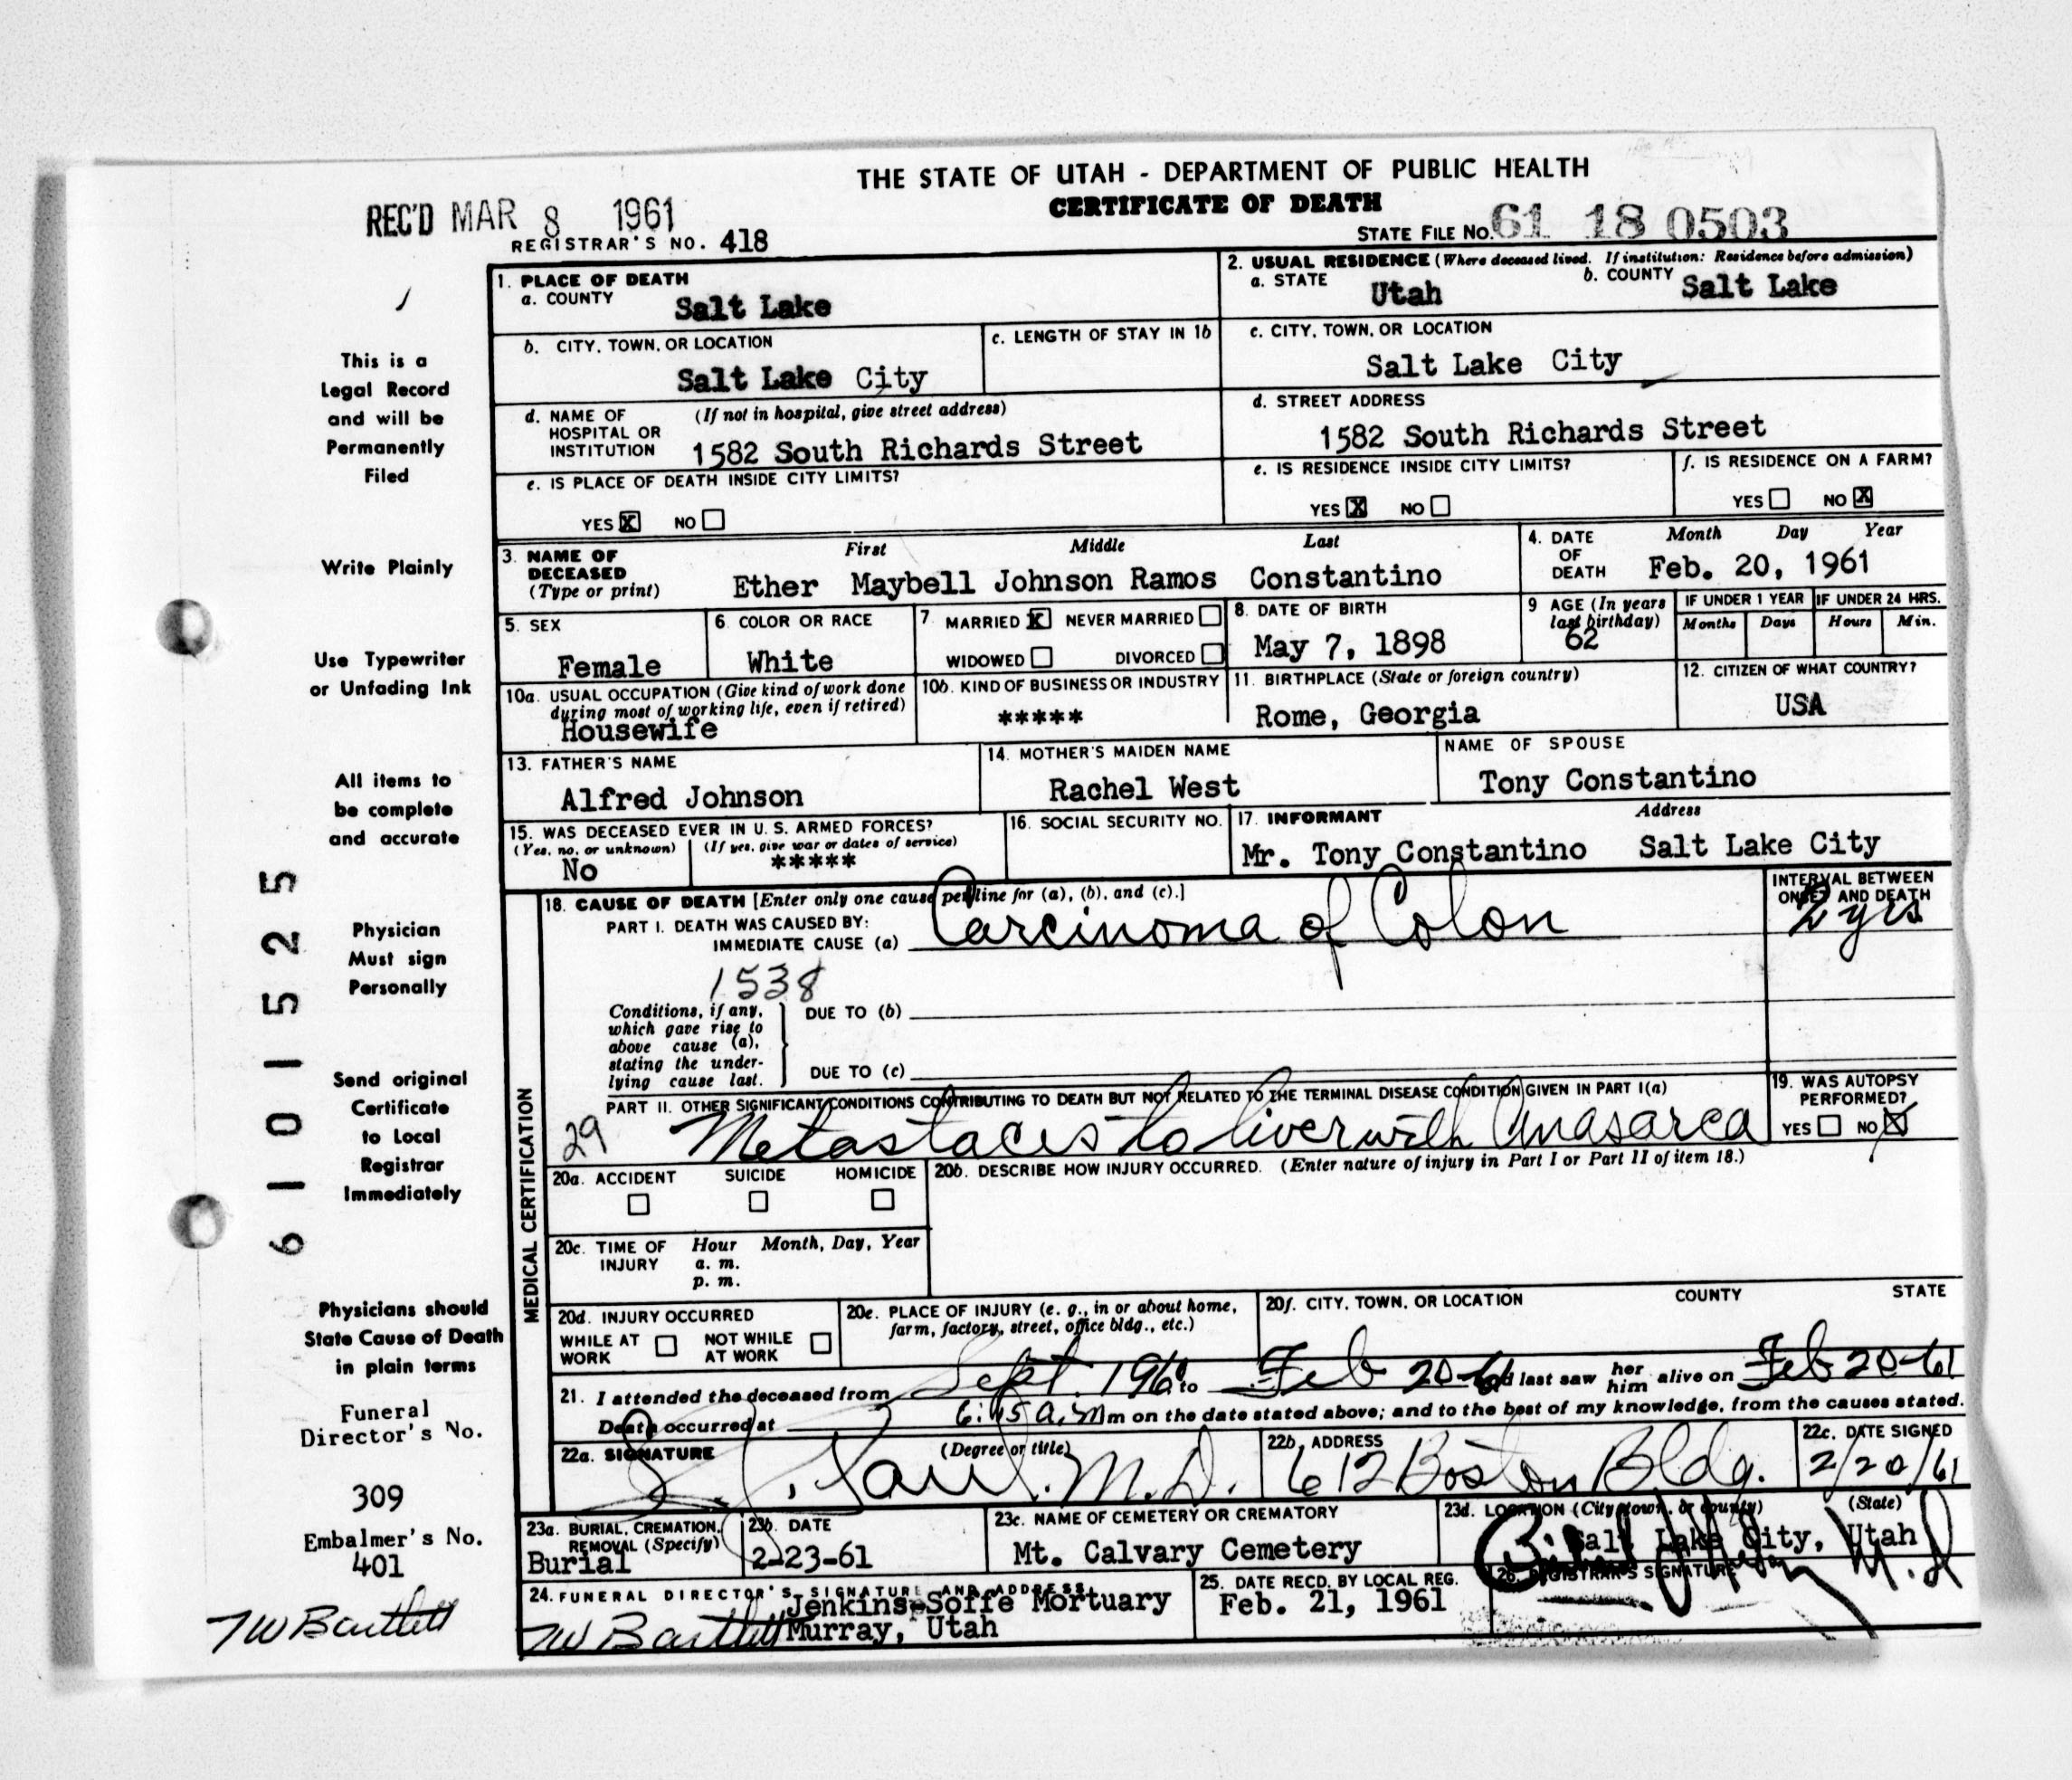 THE STATE OF UTAH - DEPARTMENT OF PUBLIC HEALTH
CERTIFICATE OF DEATH
REC'D MAR 8 1961
REGISTRAR'S NO. 418
STATE FILE NO. 61 18 0503
1. PLACE OF DEATH
a. COUNTY Salt Lake
2. USUAL RESIDENCE (Where deceased lived. If institution: Residence before admission)
a. STATE Utah b. COUNTY Salt Lake
b. CITY, TOWN, OR LOCATION
Salt Lake City
c. LENGTH OF STAY IN 1b
c. CITY, TOWN, OR LOCATION
Salt Lake City
d. NAME OF HOSPITAL OR INSTITUTION (If not in hospital, give street address)
1582 South Richards Street
d. STREET ADDRESS
1582 South Richards Street
e. IS PLACE OF DEATH INSIDE CITY LIMITS?
YES X NO
e. IS RESIDENCE INSIDE CITY LIMITS?
YES X NO
f. IS RESIDENCE ON A FARM?
YES NO X
3. NAME OF DECEASED (Type or print)
First Middle Last
Ether Maybell Johnson Ramos Constantino
4. DATE OF DEATH Month Day Year
Feb. 20, 1961
5. SEX
Female
6. COLOR OR RACE
White
7. MARRIED X NEVER MARRIED
WIDOWED DIVORCED
8. DATE OF BIRTH
May 7, 1898
9 AGE (In years last birthday)
62
IF UNDER 1 YEAR
Months Days
IF UNDER 24 HRS.
Hours Min.
10a. USUAL OCCUPATION (Give kind of work done during most of working life, even if retired)
Housewife
10b. KIND OF BUSINESS OR INDUSTRY
*****
11. BIRTHPLACE (State or foreign country)
Rome, Georgia
12. CITIZEN OF WHAT COUNTRY?
USA
13. FATHER'S NAME
Alfred Johnson
14. MOTHER'S MAIDEN NAME
Rachel West
NAME OF SPOUSE
Tony Constantino
15. WAS DECEASED EVER IN U. S. ARMED FORCES?
(Yes, no, or unknown) (If yes, give war or dates of service)
No *****
16. SOCIAL SECURITY NO.
17. INFORMANT Address
Mr. Tony Constantino Salt Lake City
18. CAUSE OF DEATH [Enter only one cause per line for (a), (b), and (c).]
PART I. DEATH WAS CAUSED BY:
IMMEDIATE CAUSE (a) Carcinoma of Colon
INTERVAL BETWEEN ONSET AND DEATH
2 yrs
1538
Conditions, if any, which gave rise to above cause (a), stating the underlying cause last.
DUE TO (b)
DUE TO (c)
PART II. OTHER SIGNIFICANT CONDITIONS CONTRIBUTING TO DEATH BUT NOT RELATED TO THE TERMINAL DISEASE CONDITION GIVEN IN PART I(a)
29 Metastaces to liver with Anasarca
19. WAS AUTOPSY PERFORMED?
YES NO X
MEDICAL CERTIFICATION
20a. ACCIDENT SUICIDE HOMICIDE
20b. DESCRIBE HOW INJURY OCCURRED. (Enter nature of injury in Part I or Part II of item 18.)
20c. TIME OF INJURY Hour Month, Day, Year
a. m.
p. m.
20d. INJURY OCCURRED
WHILE AT WORK NOT WHILE AT WORK
20e. PLACE OF INJURY (e. g., in or about home, farm, factory, street, office bldg., etc.)
20f. CITY, TOWN, OR LOCATION COUNTY STATE
21. I attended the deceased from Sept. 1960 to Feb 20-61 and last saw her him alive on Feb 20-61
Death occurred at 6:45 a.m m on the date stated above; and to the best of my knowledge, from the causes stated.
22a. SIGNATURE (Degree or title)
M.D.
22b. ADDRESS
612 Boston Bldg.
22c. DATE SIGNED
2/20/61
23a. BURIAL, CREMATION, REMOVAL (Specify)
Burial
23b. DATE
2-23-61
23c. NAME OF CEMETERY OR CREMATORY
Mt. Calvary Cemetery
23d. LOCATION (City, town, or county) (State)
Salt Lake City, Utah
24. FUNERAL DIRECTOR'S SIGNATURE AND ADDRESS
TW Bartlett Jenkins-Soffe Mortuary
Murray, Utah
25. DATE RECD. BY LOCAL REG.
Feb. 21, 1961
26. REGISTRAR'S SIGNATURE
M.D
This is a
Legal Record
and will be
Permanently
Filed
Write Plainly
Use Typewriter
or Unfading Ink
All items to
be complete
and accurate
Physician
Must sign
Personally
Send original
Certificate
to Local
Registrar
Immediately
Physicians should
State Cause of Death
in plain terms
Funeral
Director's No.
309
Embalmer's No.
401
TW Bartlett
6101525